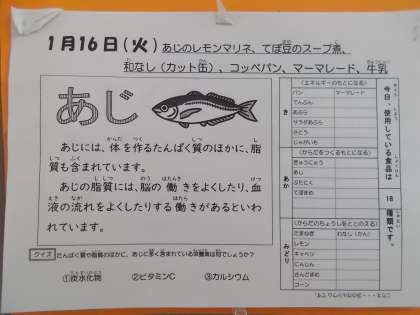 1月16日(火) あじのレモンマリネ、てぼ豆のスープ煮、
和なし(カット缶)、コッペパン、マーマレード、牛乳
あじ
あじには、体を作るたんぱく質のほかに、脂
質も含まれています。
あじの脂質には、脳の働きをよくしたり、血
液の流れをよくしたりする働きがあるといわ
れています。
クイズ たんぱく質や脂質のほかに、あじに多く含まれている栄養素は何でしょうか?
①炭水化物 ②ビタミンC ③カルシウム
今日、使用している食品は 18 種類です。
き
(エネルギーのもとになる)
パン マーマレード
でんぷん
あぶら
サラダあぶら
さとう
じゃがいも
あか
(からだをつくるもとになる)
ぎゅうにゅう
あじ
ぶたにく
てぼまめ
みどり
(からだのちょうしをととのえる)
たまねぎ わなし(かん)
レモン
キャベツ
にんじん
さんどまめ
コーン